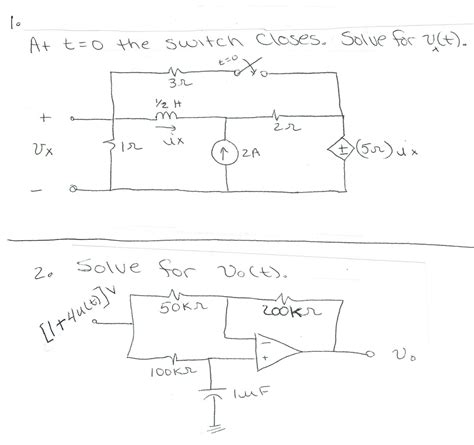 1.
At t=0 the switch closes. Solve for vx(t).
t=0
3Ω
½ H
+
2Ω
vx
1Ω
ix
2A
(5Ω) ix
−
2. Solve for vo(t).
[1+4u(t)]V
50KΩ
200KΩ
−
+
vo
100KΩ
1uF